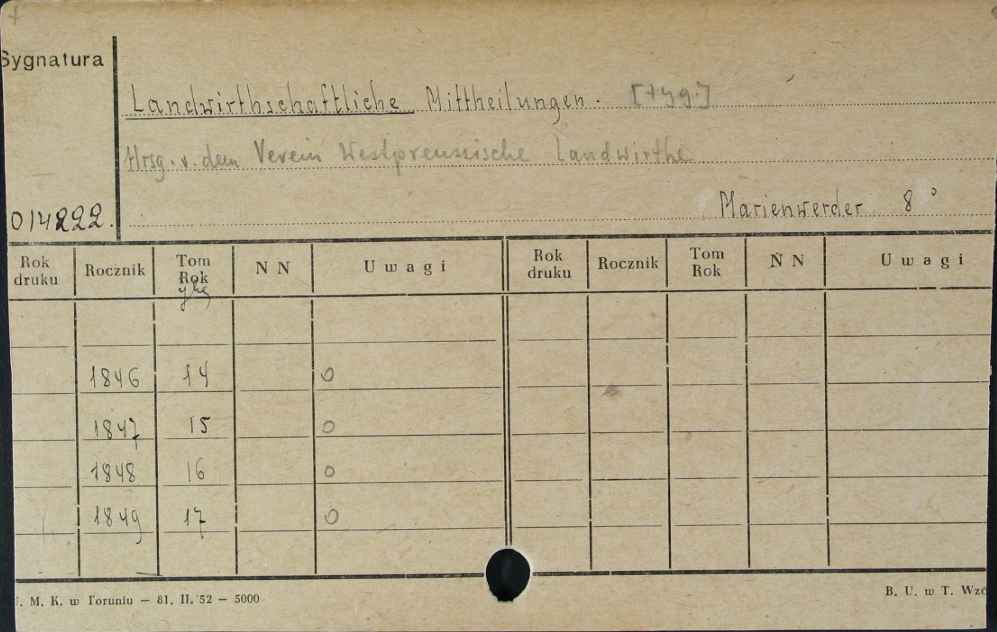 Sygnatura
Landwirthschaftliche Mittheilungen. [tyg.]
Hrsg. v. dem Verein Westpreussische Landwirthe
014222.
Marienwerder 8°
Rok druku Rocznik Tom Rok N N Uwagi Rok druku Rocznik Tom Rok N N Uwagi
1846 14 0
1847 15 0
1848 16 0
1849 17 0
U. M. K. w Toruniu — 81. II. 52 — 5000
B. U. w T. Wzó